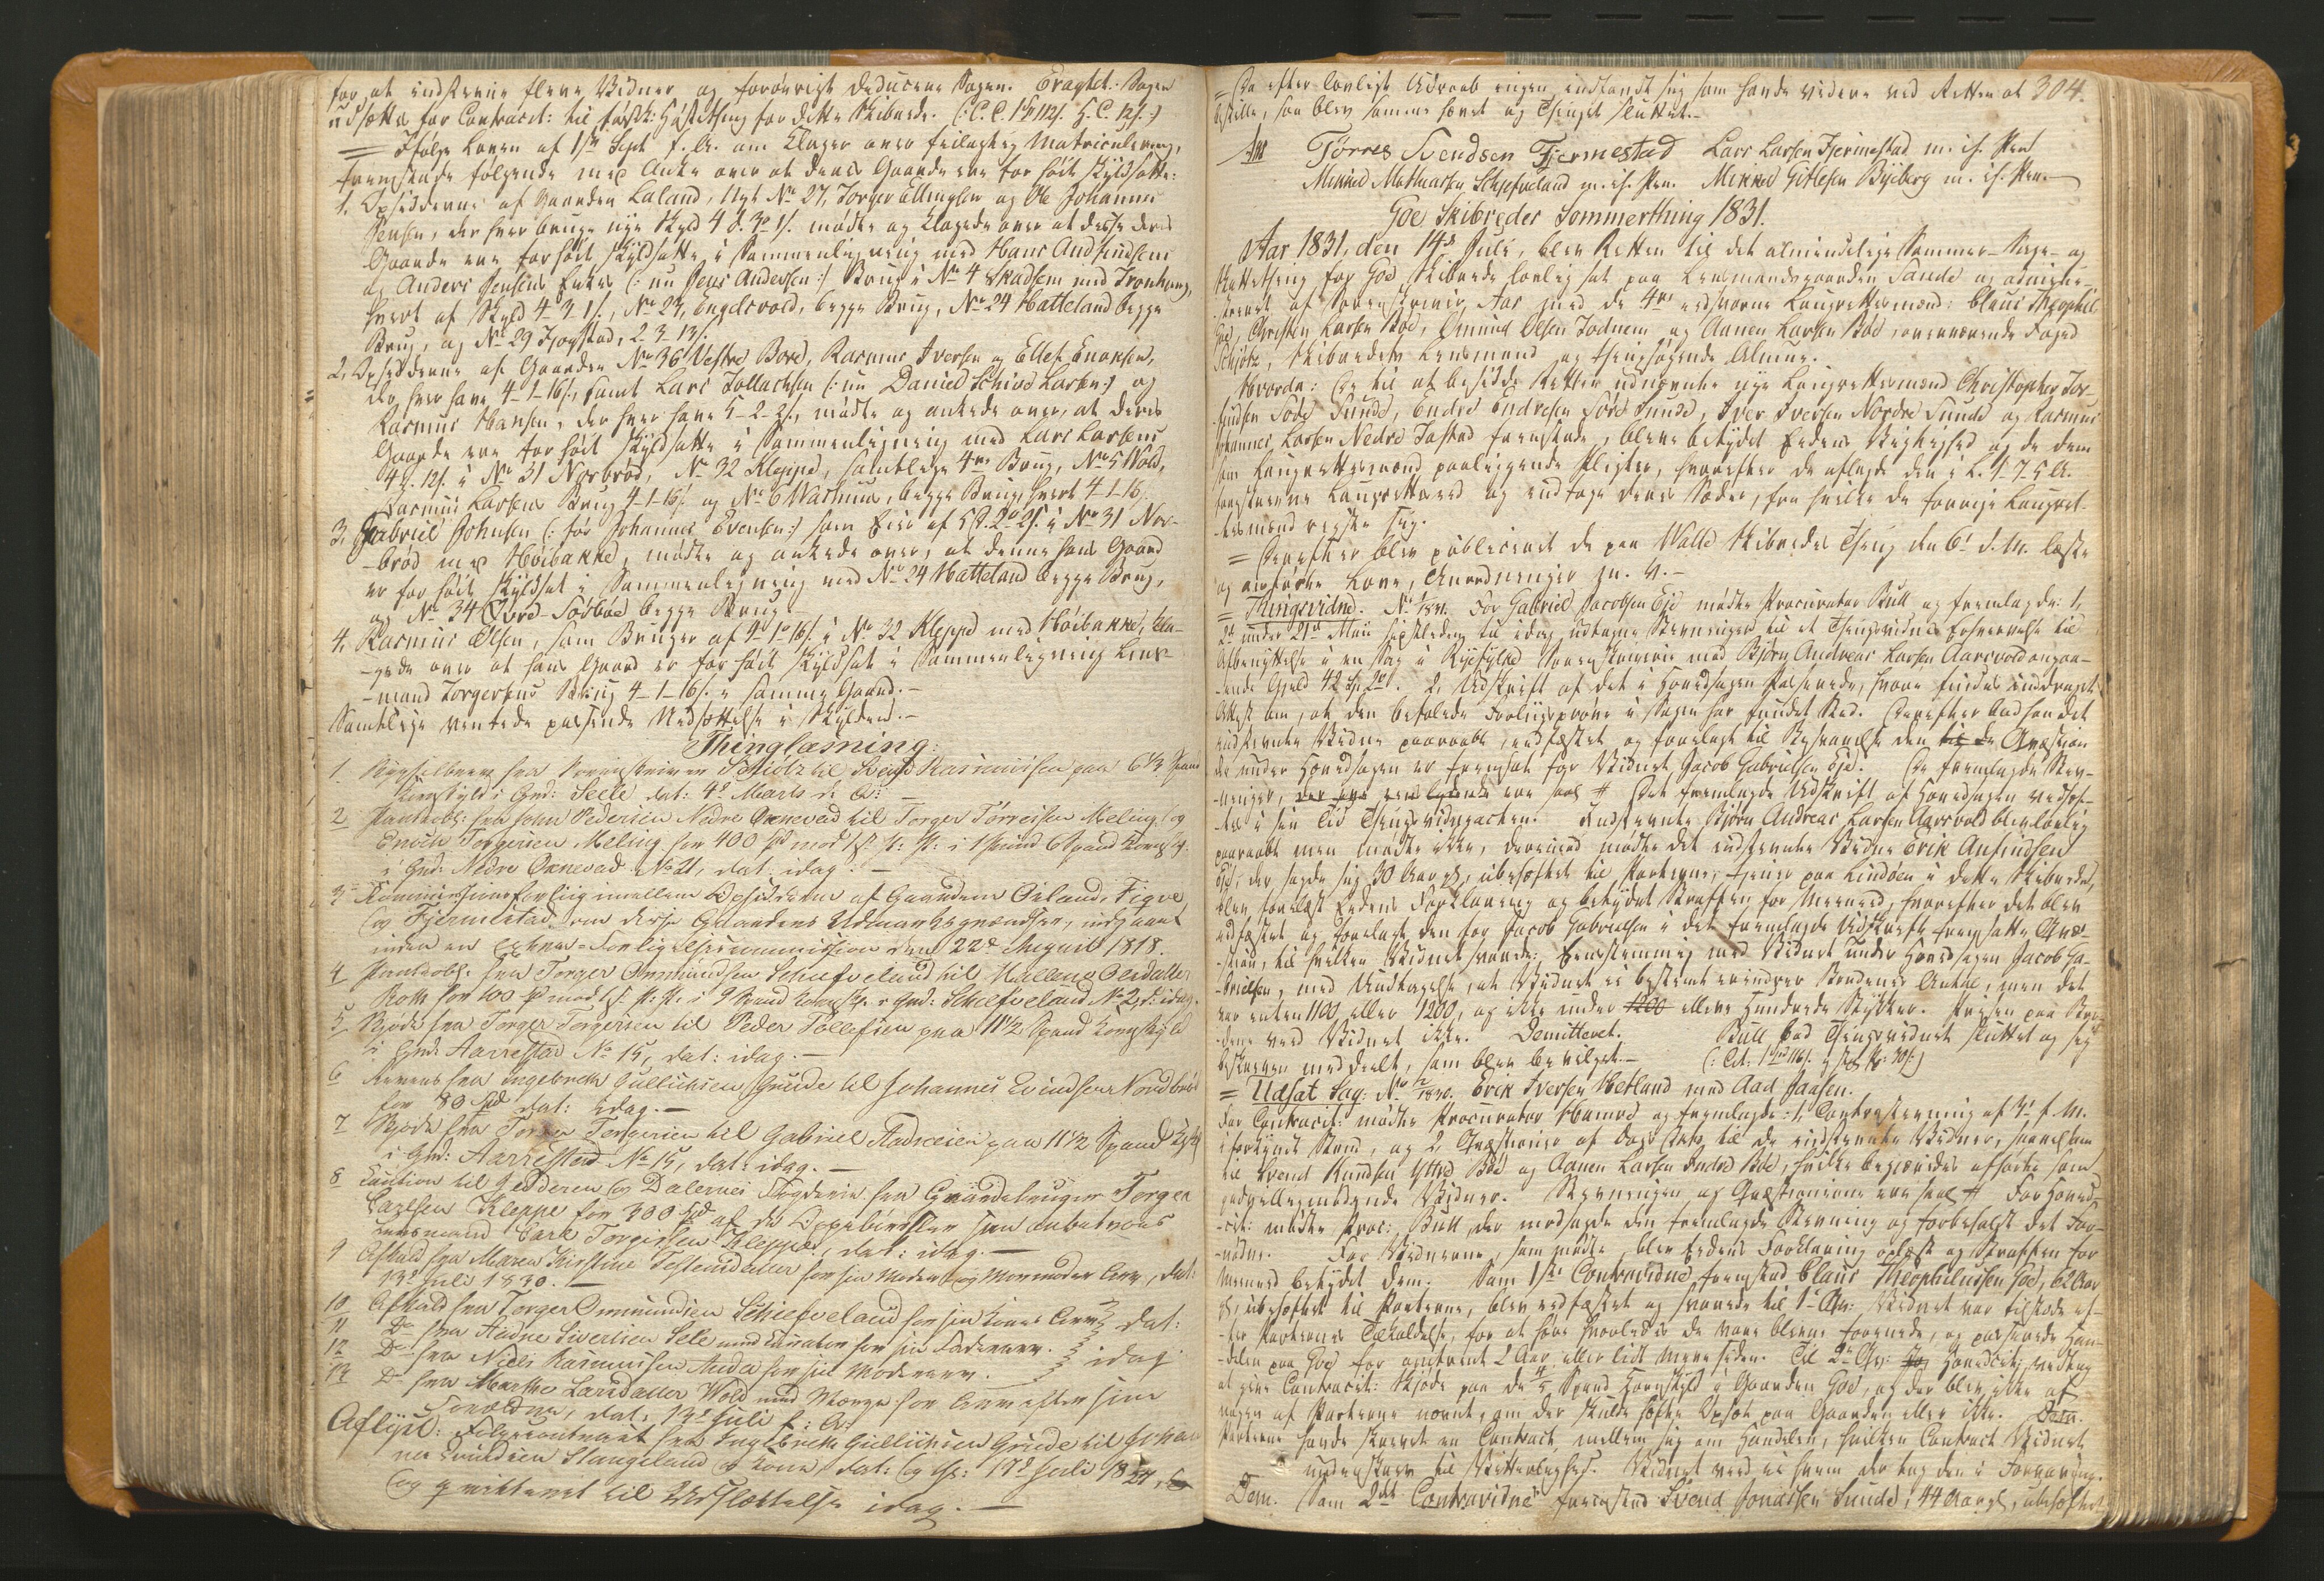 for at indstevne flere Vidner og forøvrigt deducere Sagen. Eragtet: Sagen
udsættes for Contracit: til førstk: Høstthing for dette Skibrede.
= Ifølge Loven af 1ste Sept f. A. om Klager over feilagtig Matriculering,
fremstode følgende med Anke over at deres Gaarde ere for høit skyldsatte:
1, Opsidderne af Gaarden Laland, Nyt No 27, Torger Ellingsen og Ole Johannes
Jensen, der hver bruge nye Skyld 4 d. 3 o 1 s. mødte og klagede over at disse deres
Gaarde ere for høit skyldsatte i Sammenligning med Hans Aud findsens
og Anders Jensens Enkes (: nu Jens Andersen:) Brug i No 4 Skadsem med Tronhaug,
hvert af Skyld 4-3-1 s., No 23, Engelsvold, begge Brug, No 24 Hatteland begge
Brug, og No 29 Fjogstad, 2-3-13 s.
2, Opsidderne af Gaarden No 36 Vestre Bore, Rasmus Iversen og Ellef Enoksen,
der hver have 4-1-16 s., samt Lars Tollachsen (: nu Daniel Schiod Larsen:) og
Rasmus Hansen, der hver have 5-2-2 s., mødte og ankede over, at deres
Gaarde ere for høit skyldsatte i Sammenligning med Lars Larsens
4 d. 12 s. i No 31 Norbrød, No 32 Kleppe, samtlige 4re Brug, No 5 Wold,
Rasmus Larsens Brug 4-1-16 s. og No 6 Warhuus, begge Brug, hvert 4-1-16 s.
3, Gabriel Johnsen (: før Johannes Evensen:) som Eier af 5 d. 2 o 2 s. i No 31 Nor-
-brød med Høibakke, mødte og ankede over, at denne hans Gaard
er for høit skyldsat i Sammenligning med No 24 Hatteland begge Brug,
og No 34 Øvre-Sørbøe begge Brug.
4, Rasmus Olsen, som Bruger af 4-1-16 s. i No 32 Kleppe med Høibakke, kla-
-gede over at hans Gaard er for høit skyldsat i Sammenligning Lens-
-mand Torgersens Brug 4-1-16 s. i samme Gaard.-
Samtlige ventede passende Nedsættelse i Skylden.-
Thinglæsning:
1. Bygselbrev fra Sorenskriver Schiøtz til Svend Rasmussen paa 6 1/3 Spand
Kornskyld i Grd: Seele dat: 4de Marts d: A: -
2 Pantobl: fra John Pedersen Nedre Oxnevad til Torger Tørreisen Meling og
Enoch Torgersen Meling for 400 Spd mod 1ste P: Pt: i 1 Pund 6 Spand Kornsk:
i Grd: Nedre Oxnevad No 21, dat: idag. -
3 Kommissionsforliig imellem Opsidderne af Gaardene Orland, Tigre
og Fjermestad om disse Gaardens Udmarksgrændser, indgaaet
inden en extra-Forligelsescommission den 22de August 1818.
4 Pantobl: fra Torger Omundsen Schiefveland til Malene Olesdatter
Roth for 100 Spd mod 1st P: Pt: i 9 Spand Kornsk: i Grd: Schiefveland No 2, d: idag.
5 Skjøde fra Torger Torgersen til Peder Tollefsen paa 11 1/2 Spand Kornskyld
i Grd: Aarrestad No 15, dat: idag.-
6 Revers fra Ingebreth Gullichsen Grude til Johannes Evindsen Nordbrød
for 80 Spd dat: idag.-
7 Skjøde fra Torger Torgersen til Gabriel Andreesen paa 11 1/2 Spand Ksk
i Grd: Aarrestad No 15, dat: idag.-
8 Caution til Jedderen og Dalernes Fogderie fra Gaardsbruger Torger
Carlsen Kleppe for 300 Spd af de Oppebørsler som anbetroes
Lensmand Carl Torgersen Kleppe, dat: idag.-
9 Afkald fra Maren Kirstine Testensdatter for sin Moder og Mormoder Arv, dat:
13de Juli 1830.-
10 Afkald fra Torger Omundsen Schiefveland for sin Kones Arv } dat:
11 Do fra Aadne Sivertsen Sele med Curator for sin Fadererv. }
12 Do fra Niels Rasmussen Anda for sin Moderarv. } idag
13 Do fra Marthe Larsdatter Wold med Værge for Arv efter sine
Forældre, dat: 13de Juli d: A:
Aflyst: Følgecontract fra Ingebreth Gullichsen Grude til Johan-
nes Evindsen Stangeland og Kone, dat: og th: 17de Juli 1827,
og qvitteret til Udslettelse idag.-
304.
= Da efter lovligt Udraab ingen indfandt sig som havde videre ved Retten at
bestille, saa blev samme hævet og Thinget sluttet.-
Aas Tørres Svendsen Fjermestad Lars Larsen Fjermestad m. if. Pen
Mikkel Mathiasen Schjefveland m. if. Pen. Mikkel Gitlesen Byberg m. if. Pen
Goe Skibredes Sommerthing 1831.
Aar 1831, den 14de Juli, blev Retten til det almindelige Sommer- Sage- og
Skattething for Goe Skibrede lovlig sat paa Lensmandsgaarden Sande og admini-
-streret af Sorenskriver Aas med de 4re edsvorne Laugrettesmænd: Claus Theophil
Goe, Christen Larsen Bøe, Omund Olsen Todnem, og Aanen Larsen Bøe, overværende Foged
Schiøtz, Skibredets Lensmand og thingsøgende Almue.
Hvorda: De til at besidde Retten udnævnte nye Laugrettesmænd Christopher Tor-
-findsen Søde Sunde, Endre Endresen Søre Sunde, Iver Iversen Nordre Sunde og Rasmus
Johannes Larsen Nedre Jastad fremstode, bleve betydet Edens Vigtighed og de dem
som Laugrettesmænd paaliggende Pligter, hvorefter de aflagde den i L. 1-7-5 A.
foreskrevne Laugrettesed og indtoge deres Sæder, fra hvilke de forrige Laugret-
-tesmænd reiste sig.
= Derefter blev publiceret de paa Walle Skibredes Thing den 6te d. M. læste
og anførte Love, Anordninger m. v.-
= Thingsvidne. No 1/1831. For Gabriel Jacobsen Eje mødte Procurator Bull og fremlagde: 1,
De under 21de Maii sidstleden til idag udtagne Stevninger til et Thingsvidnes Erhvervelse til
Afbenyttelse i en Sag i Ryefylke Sorenskriverie mod Bjørn Andreas Larsen Aarsvold angaa-
-ende Gjeld 42 Spd. 2, Udskrift af det i Hovedsagen Passerede, hvori findes inddraget
Attest om, at den befalede Forligsprøve i Sagen har fundet Sted. Derefter bad han det
indstevnte Vidne paaraabt, edfæstet og forelagt til Besvarelse den Qvæstion
der under Hovedsagen er fremsat for Vidnet Jacob Gabrielsen Eje. De fremlagde Stev-
-ninger, ere saal. # Det fremlagde Udskrift af Hovedsagen vedhef-
-tes i sin Tid Thingsvidneacten. Indstevnte Bjørn Andreas Larsen Aarsvold blev lovlig
paaraabt men mødte ikke, derimod mødte det indstevnte Vidne Erik Anfindsen
Eje, der sagde sig 30 Aar gl., ubeslægtet til Parterne, tjener paa Lindøen i dette Skibrede,
blev forelæst Edens Forklaring og betydet Straffen for Meened, hvorefter det blev
edfæstet og forelagt den for Jacob Gabrielsen i det fremlagde Udskrift fremsatte Qvæ-
-stion, til hvilken Vidnet svarede: Eenstemmig med Vidnet under Hovedsagen Jacob Ga-
-brielsen, med Undtagelse, at Vidnet ei bestemt erindrer Stavenes Antal, men det
var enten 1100 eller 1200, og ikke under elleve Hundrede Stykker. Prisen paa Sta-
-vene veed Vidnet ikke. Demitteret. Bull bad Thingsvidnet sluttet og sig
beskreven meddeelt, som blev bevilget.-
= Udsat Sag: No 2/1830. Erik Iversen Hetland mod Aad Jaasen.
For Contracit: mødte Procurator Hamre og fremlagde: 1, Contrastevning af 3de f. M.
i forkyndt Stand, og 2, Qvæstioner af Dags Dato til de indstevnte Vidner, saavelsom
til Svend Knudsen Yttre Bøe og Aanen Larsen Indre Bøe, hvilke begjæredes afhørte som
godvilligmødende Vidner. Stevningen og Qvæstionerne ere saal. # For Hoved-
-cit: mødte Proc: Bull, der modsagde den fremlagde Stevning og forbeholdt det For-
-nødne. For Vidnerne, som mødte, blev Edens Forklaring oplæst og Straffen for
Meened betydet dem. Som 1ste Contravidne fremstod Claus Theophilussen Goe, 62 Aar
gl, ubeslægtet til Parterne, blev edfæstet og svarede til 1ste Qv: Vidnet var tilstede ef-
-ter Parternes Tilkaldelse, for at høre hvorledes de vare blevne forenede, og passerede Han-
-delen paa Goe for omtrent 2 Aar eller lidt mere siden. Til 2de Qv: Hovedcit: vedtog
at give Contracit: Skjøde paa de Spand Kornskyld i Gaarden Goe, og der blev ikke af
nogen af Parterne nævnt, om der skulde hefte Opsæt paa Gaarden eller ikke.
Parterne havde skrevet en Contract mellem sig om Handelen, hvilken Contract Vidnet
underskrev til Vitterlighed. Vidnet veed ei hvem der tog den i Forvaring.
Dem. Som 2det Contravidne fremstod Svend Jonassen Sunde, 44 Aar gl, ubeslægtet